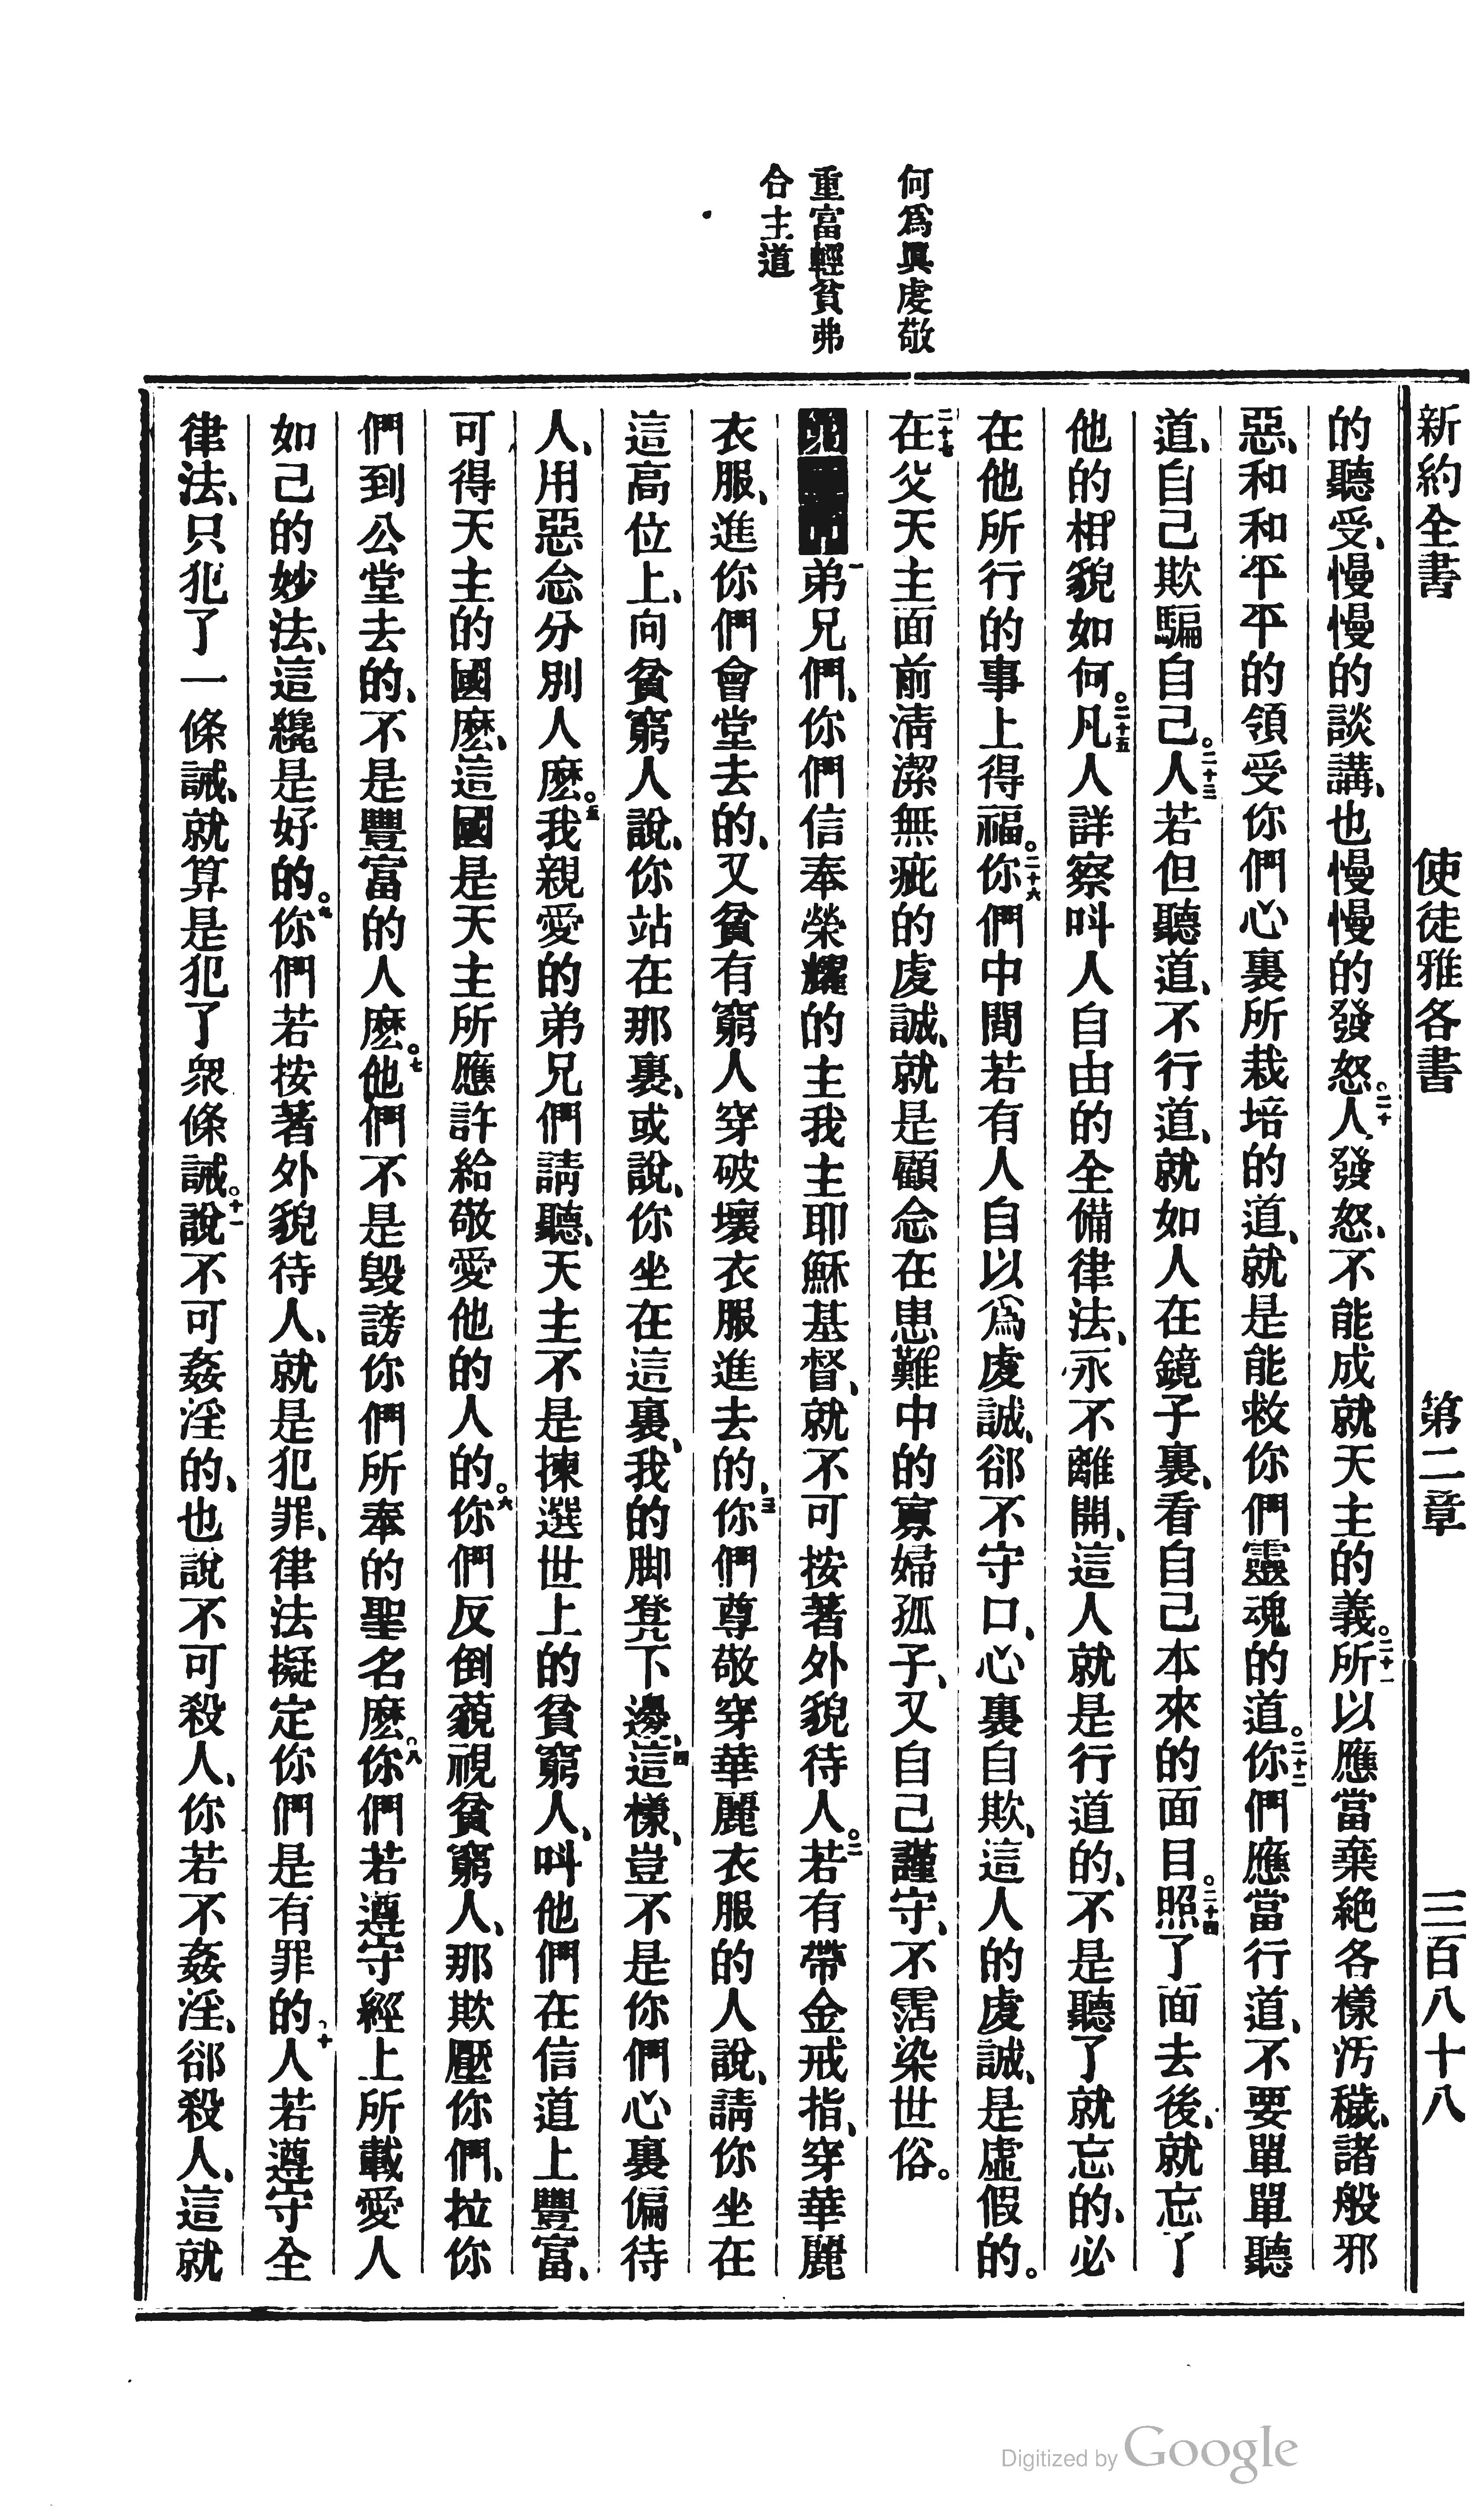 新約全書 使徒雅各書 第二章 三百八十八
何爲眞虔敬
重富輕貧弗
合主道
的聽受、慢慢的談講、也慢慢的發怒。二十人發怒、不能成就天主的義。二十一所以應當棄絕各樣汚穢、諸般邪
惡、和和平平的領受你們心裏所栽培的道、就是能救你們靈魂的道。二十二你們應當行道、不要單單聽
道、自己欺騙自己。二十三人若但聽道、不行道、就如人在鏡子裏、看自己本來的面目。二十四照了面去後、就忘了
他的相貌如何。二十五凡人詳察叫人自由的全備律法、永不離開、這人就是行道的、不是聽了就忘的、必
在他所行的事上得福。二十六你們中間若有人自以爲虔誠、卻不守口、心裏自欺、這人的虔誠、是虛假的。
二十七在父天主面前淸潔無疵的虔誠、就是顧念在患難中的寡婦孤子、又自己謹守、不霑染世俗。
一弟兄們、你們信奉榮耀的主我主耶穌基督、就不可按著外貌待人。二若有帶金戒指、穿華麗
衣服、進你們會堂去的、又貧有窮人穿破壞衣服進去的、三你們尊敬穿華麗衣服的人說、請你坐在
這高位上、向貧窮人說、你站在那裏、或說、你坐在這裏、我的脚凳下邊、四這樣、豈不是你們心裏偏待
人、用惡念分別人麽。五我親愛的弟兄們請聽、天主不是揀選世上的貧窮人、叫他們在信道上豐富、
可得天主的國麽、這國是天主所應許給敬愛他的人的。六你們反倒藐視貧窮人、那欺壓你們、拉你
們到公堂去的、不是豐富的人麽。七他們不是毀謗你們所奉的聖名麽。八你們若遵守經上所載愛人
如己的妙法、這纔是好的。九你們若按著外貌待人、就是犯罪、律法擬定你們是有罪的、十人若遵守全
律法、只犯了一條誡、就算是犯了衆條誡。十一說不可姦淫的、也說不可殺人、你若不姦淫、卻殺人、這就
Digitized by Google